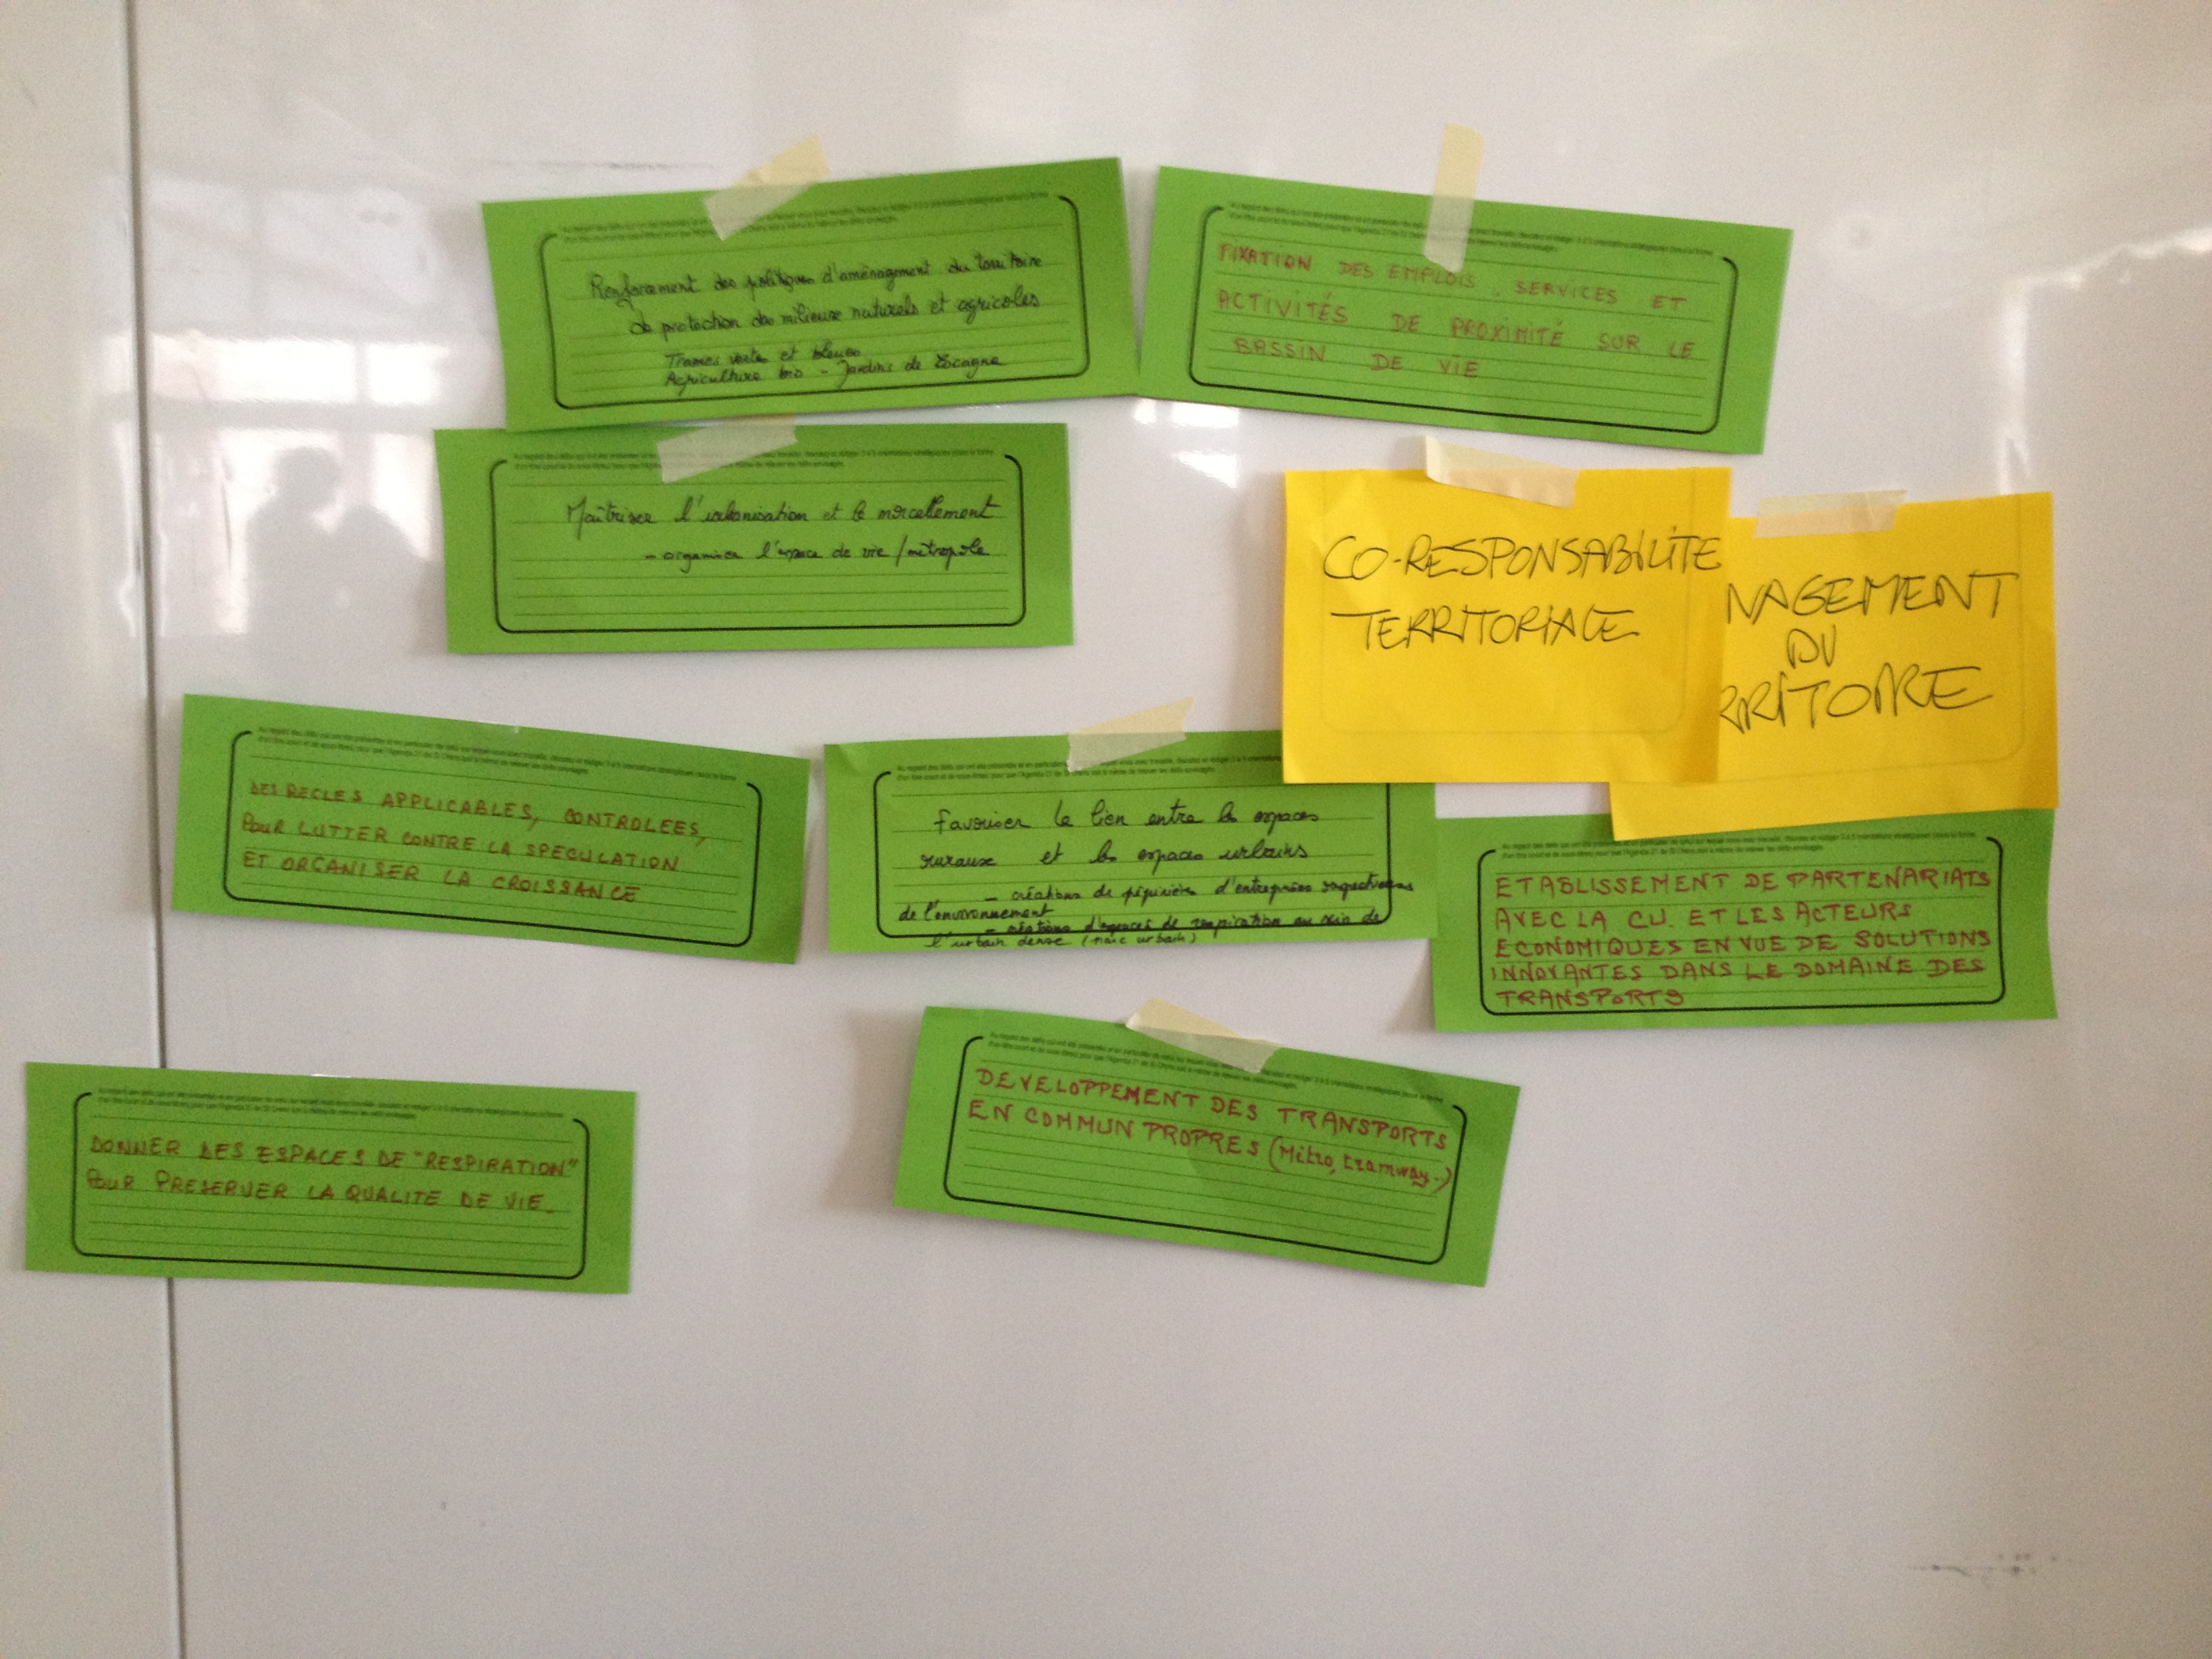 Renforcement des politiques d'aménagement du territoire
de protection des milieux naturels et agricoles
Trames verte et bleues
Agriculture bio - Jardins de Cocagne
FIXATION DES EMPLOIS, SERVICES ET
ACTIVITÉS DE PROXIMITÉ SUR LE
BASSIN DE VIE
Maîtriser l'urbanisation et le morcellement
- organiser l'espace de vie / métropole
CO-RESPONSABILITE
TERRITORIALE
NAGEMENT
DU
RRITOIRE
DES REGLES APPLICABLES, CONTROLEES,
POUR LUTTER CONTRE LA SPECULATION
ET ORGANISER LA CROISSANCE
Favoriser le lien entre les espaces
ruraux et les espaces urbains
- créations de pépinières d'entreprises respectueuses
de l'environnement
- créations d'espaces de respiration au sein de
l'urbain dense (parc urbain)
ETABLISSEMENT DE PARTENARIATS
AVEC LA CU. ET LES ACTEURS
ECONOMIQUES EN VUE DE SOLUTIONS
INNOVANTES DANS LE DOMAINE DES
TRANSPORTS
DEVELOPPEMENT DES TRANSPORTS
EN COMMUN PROPRES (Métro, tramway..)
DONNER DES ESPACES DE "RESPIRATION"
POUR PRESERVER LA QUALITE DE VIE.